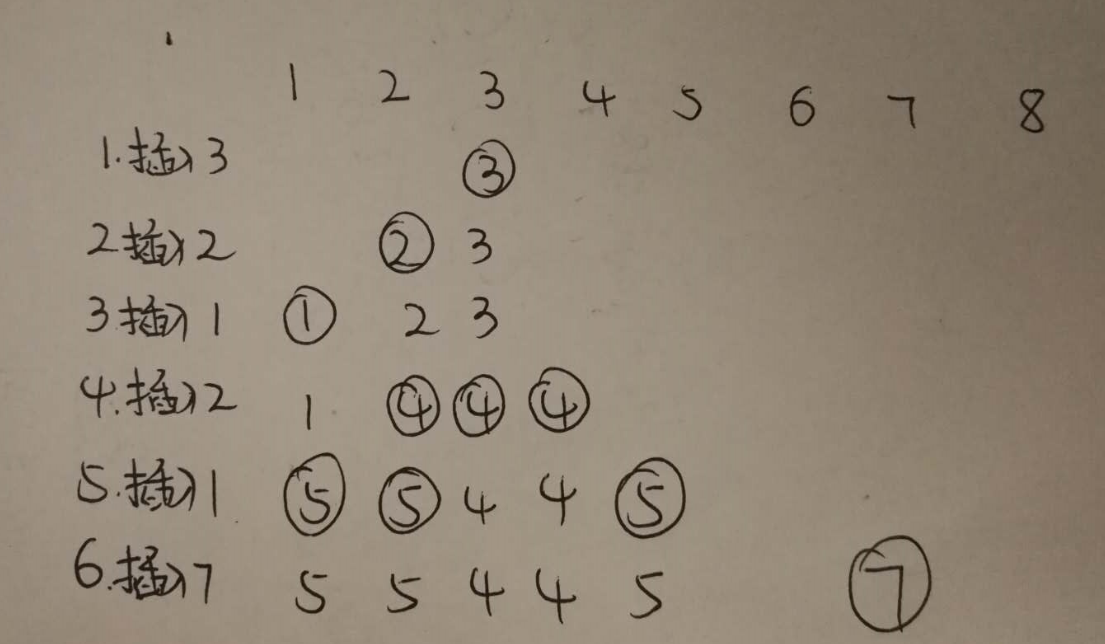 1 2 3 4 5 6 7 8
1.插入3 ③
2插入2 ② 3
3.插入1 ① 2 3
4.插入2 1 ④ ④ ④
5.插入1 ⑤ ⑤ 4 4 ⑤
6.插入7 5 5 4 4 5 ⑦